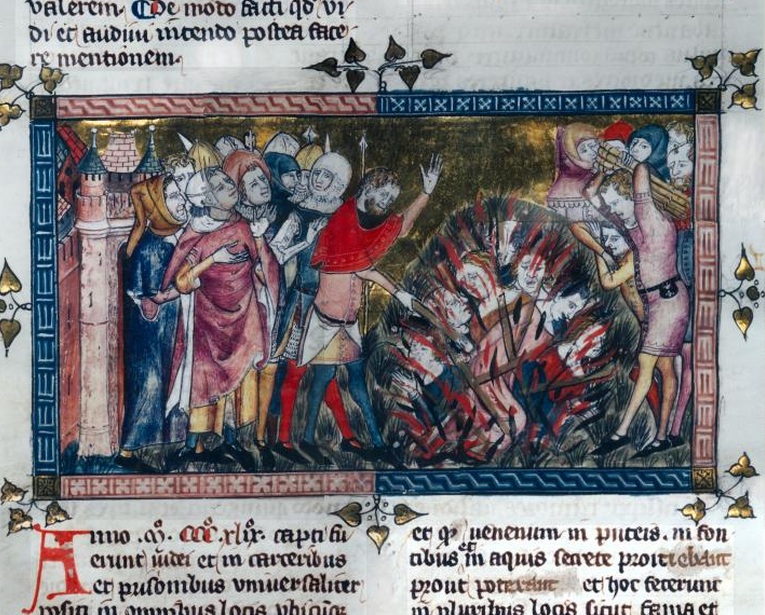 valerem. De modo facti qd vi
di et audiui intendo postea face
re mentionem.
Anno .Mo. CCCo. xlix. capti fu
erunt iudei et in carceribus
et prisonibus vniuersaliter
positi in omnibus locis
et qd uenenum in puteis. in fon
tibus et in aquis secrete proiciebant
prout poterant et hoc fecerunt
in pluribus locis sicut ferma et